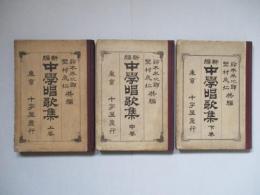 鈴木米次郎
野村成仁 共編
新編
中學唱歌集
上巻
東京 十字屋發行
鈴木米次郎
野村成仁 共編
新編
中學唱歌集
中巻
東京 十字屋發行
鈴木米次郎
野村成仁 共編
新編
中學唱歌集
下巻
東京 十字屋發行